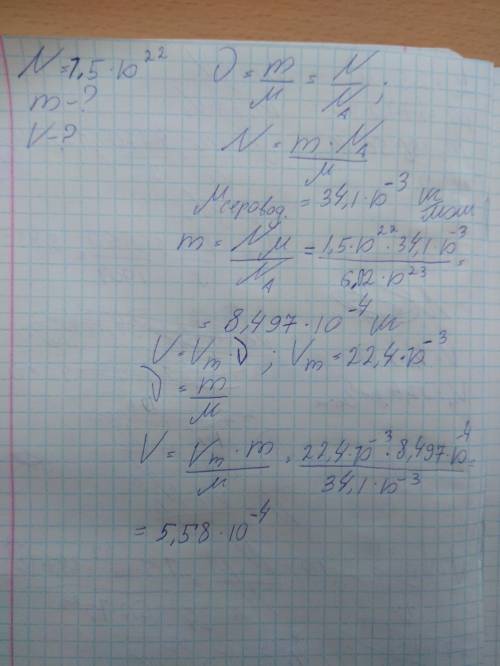 N = 1,5 · 10²² ν = m/M = N/N_A ;
m - ?
V - ? N = m · N_A / M
M серовод. = 34,1 · 10⁻³ кг/моль
m = NM/N_A = 1,5 · 10²² · 34,1 · 10⁻³ / 6,02 · 10²³ =
= 8,497 · 10⁻⁴ кг
V = V_m · ν ; V_m = 22,4 · 10⁻³
ν = m/M
V = V_m · m / M = 22,4 · 10⁻³ · 8,497 · 10⁻⁴ / 34,1 · 10⁻³ =
= 5,58 · 10⁻⁴